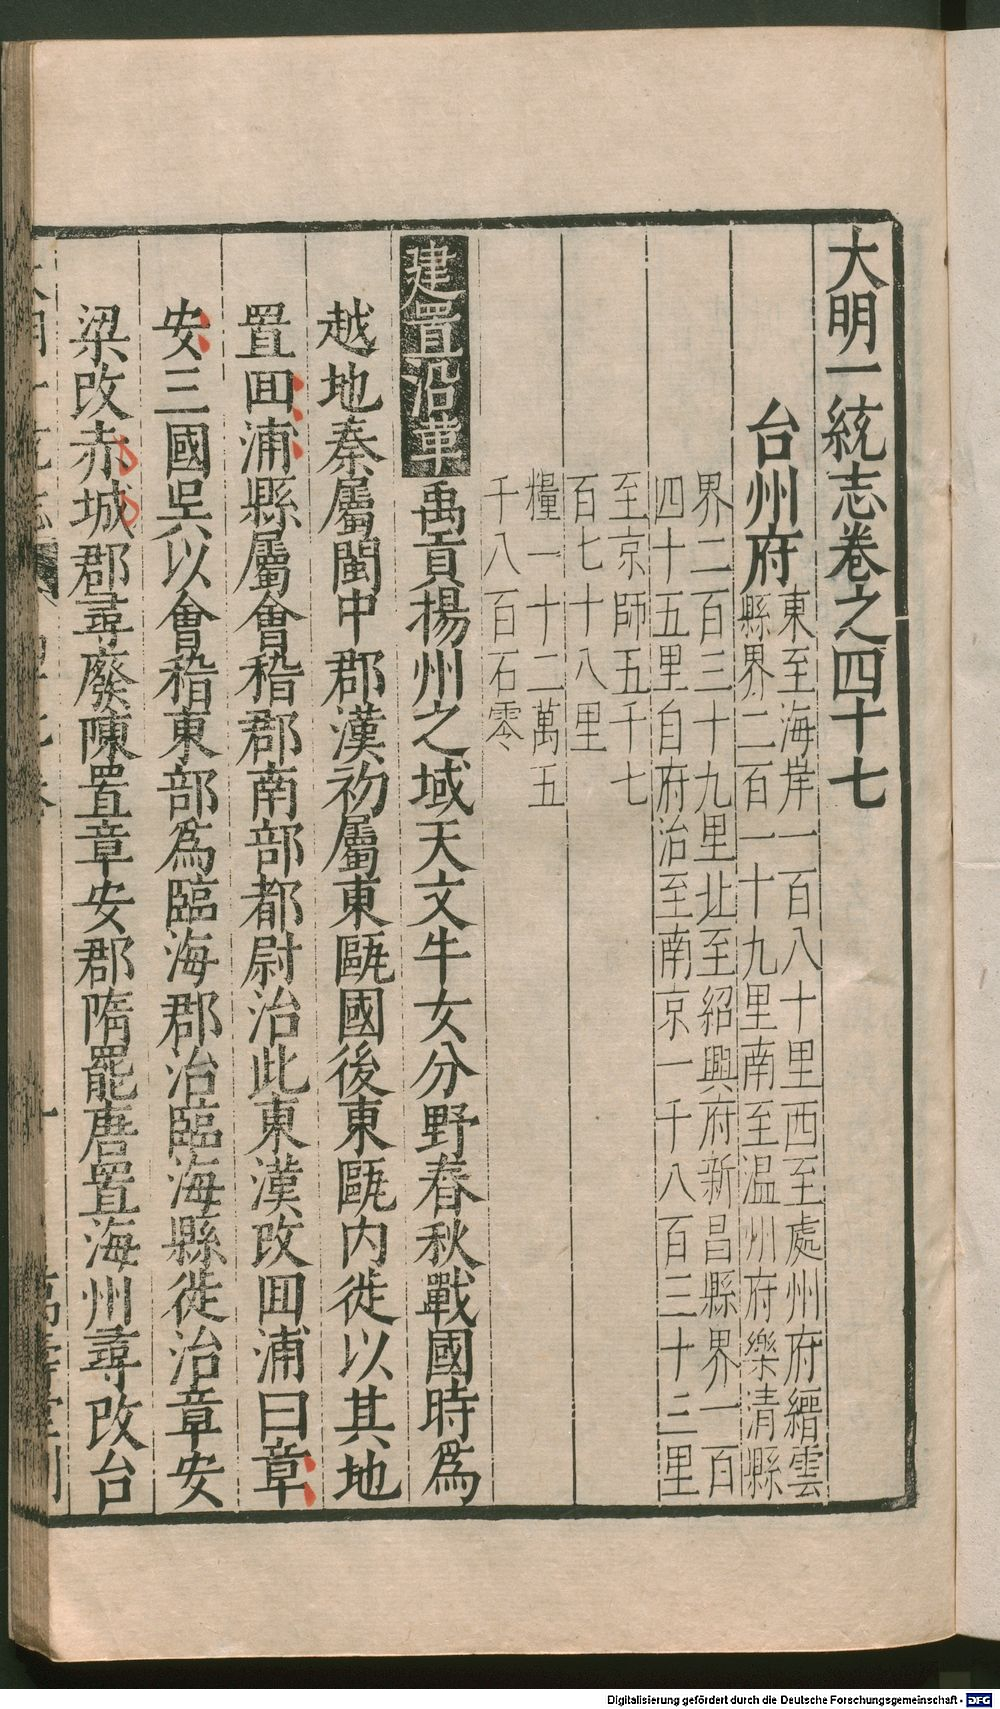 大明一統志卷之四十七
台州府
東至海岸一百八十里西至處州府縉雲
縣界二百一十九里南至温州府樂清縣
界二百三十九里北至紹興府新昌縣界一百
四十五里自府治至南京一千八百三十三里
至京師五千七
百七十八里
糧一十二萬五
千八百石零
建置沿革禹貢揚州之域天文牛女分野春秋戰國時爲
越地秦屬閩中郡漢初屬東甌國後東甌内徙以其地
置囬浦縣屬會稽郡南部都尉治此東漢改囬浦曰章
安三國吳以會稽東部爲臨海郡治臨海縣徙治章安
梁改赤城郡尋廢陳置章安郡隋罷唐置海州尋改台
Digitalisierung gefördert durch die Deutsche Forschungsgemeinschaft - DFG